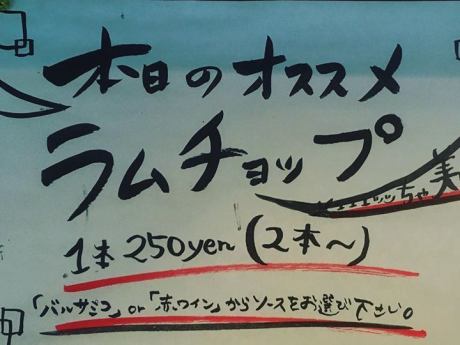 本日のオススメ
ラムチョップ
1本 250yen (2本〜)
「バルサミコ」or「赤ワイン」からソースをお選び下さい。